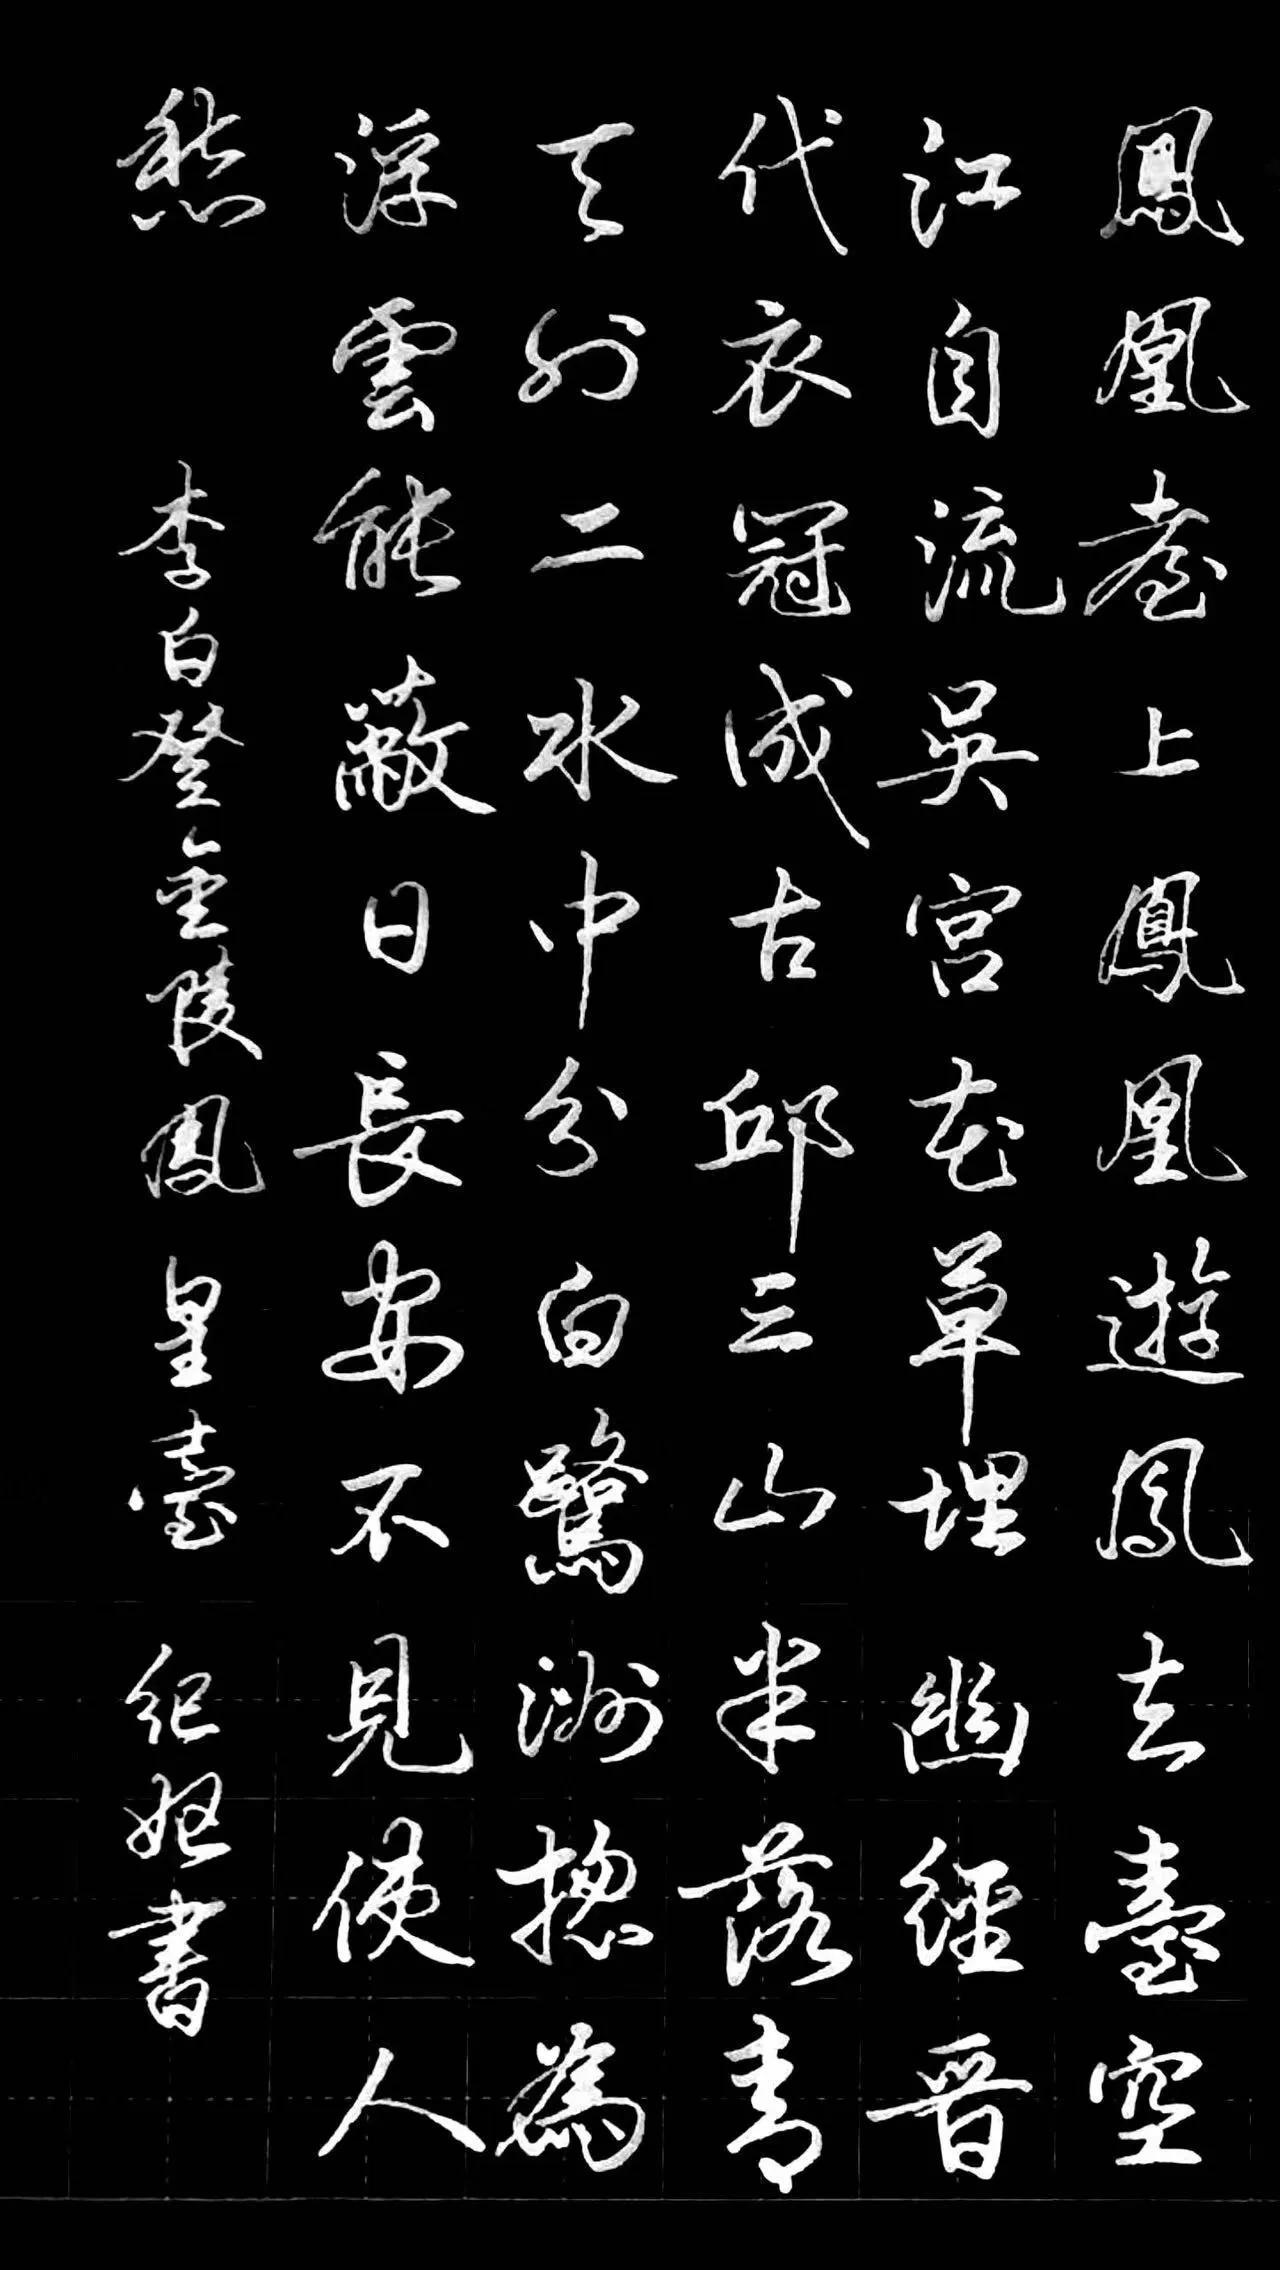 鳳凰臺上鳳凰遊鳳去臺空
江自流吳宮花草埋幽經晉
代衣冠成古邱三山半落青
天外二水中分白鷺洲揔為
浮雲能蔽日長安不見使人
愁 李白登金陵鳳皇臺 紀書